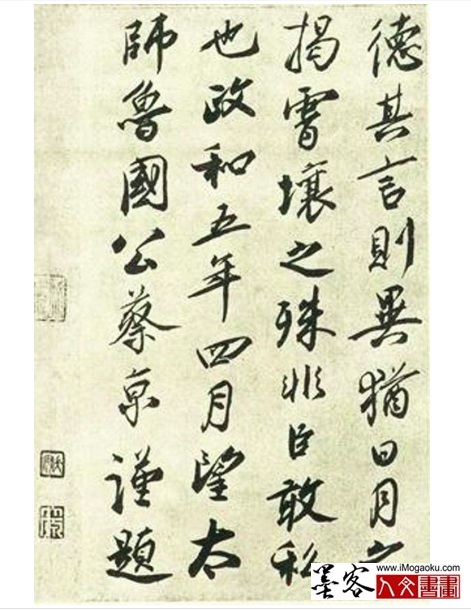 德其言則異猶日月之
揭霄壤之殊非臣敢私
也政和五年四月望太
師魯國公蔡京謹題
www.iMogaoku.com
墨客人文書畫